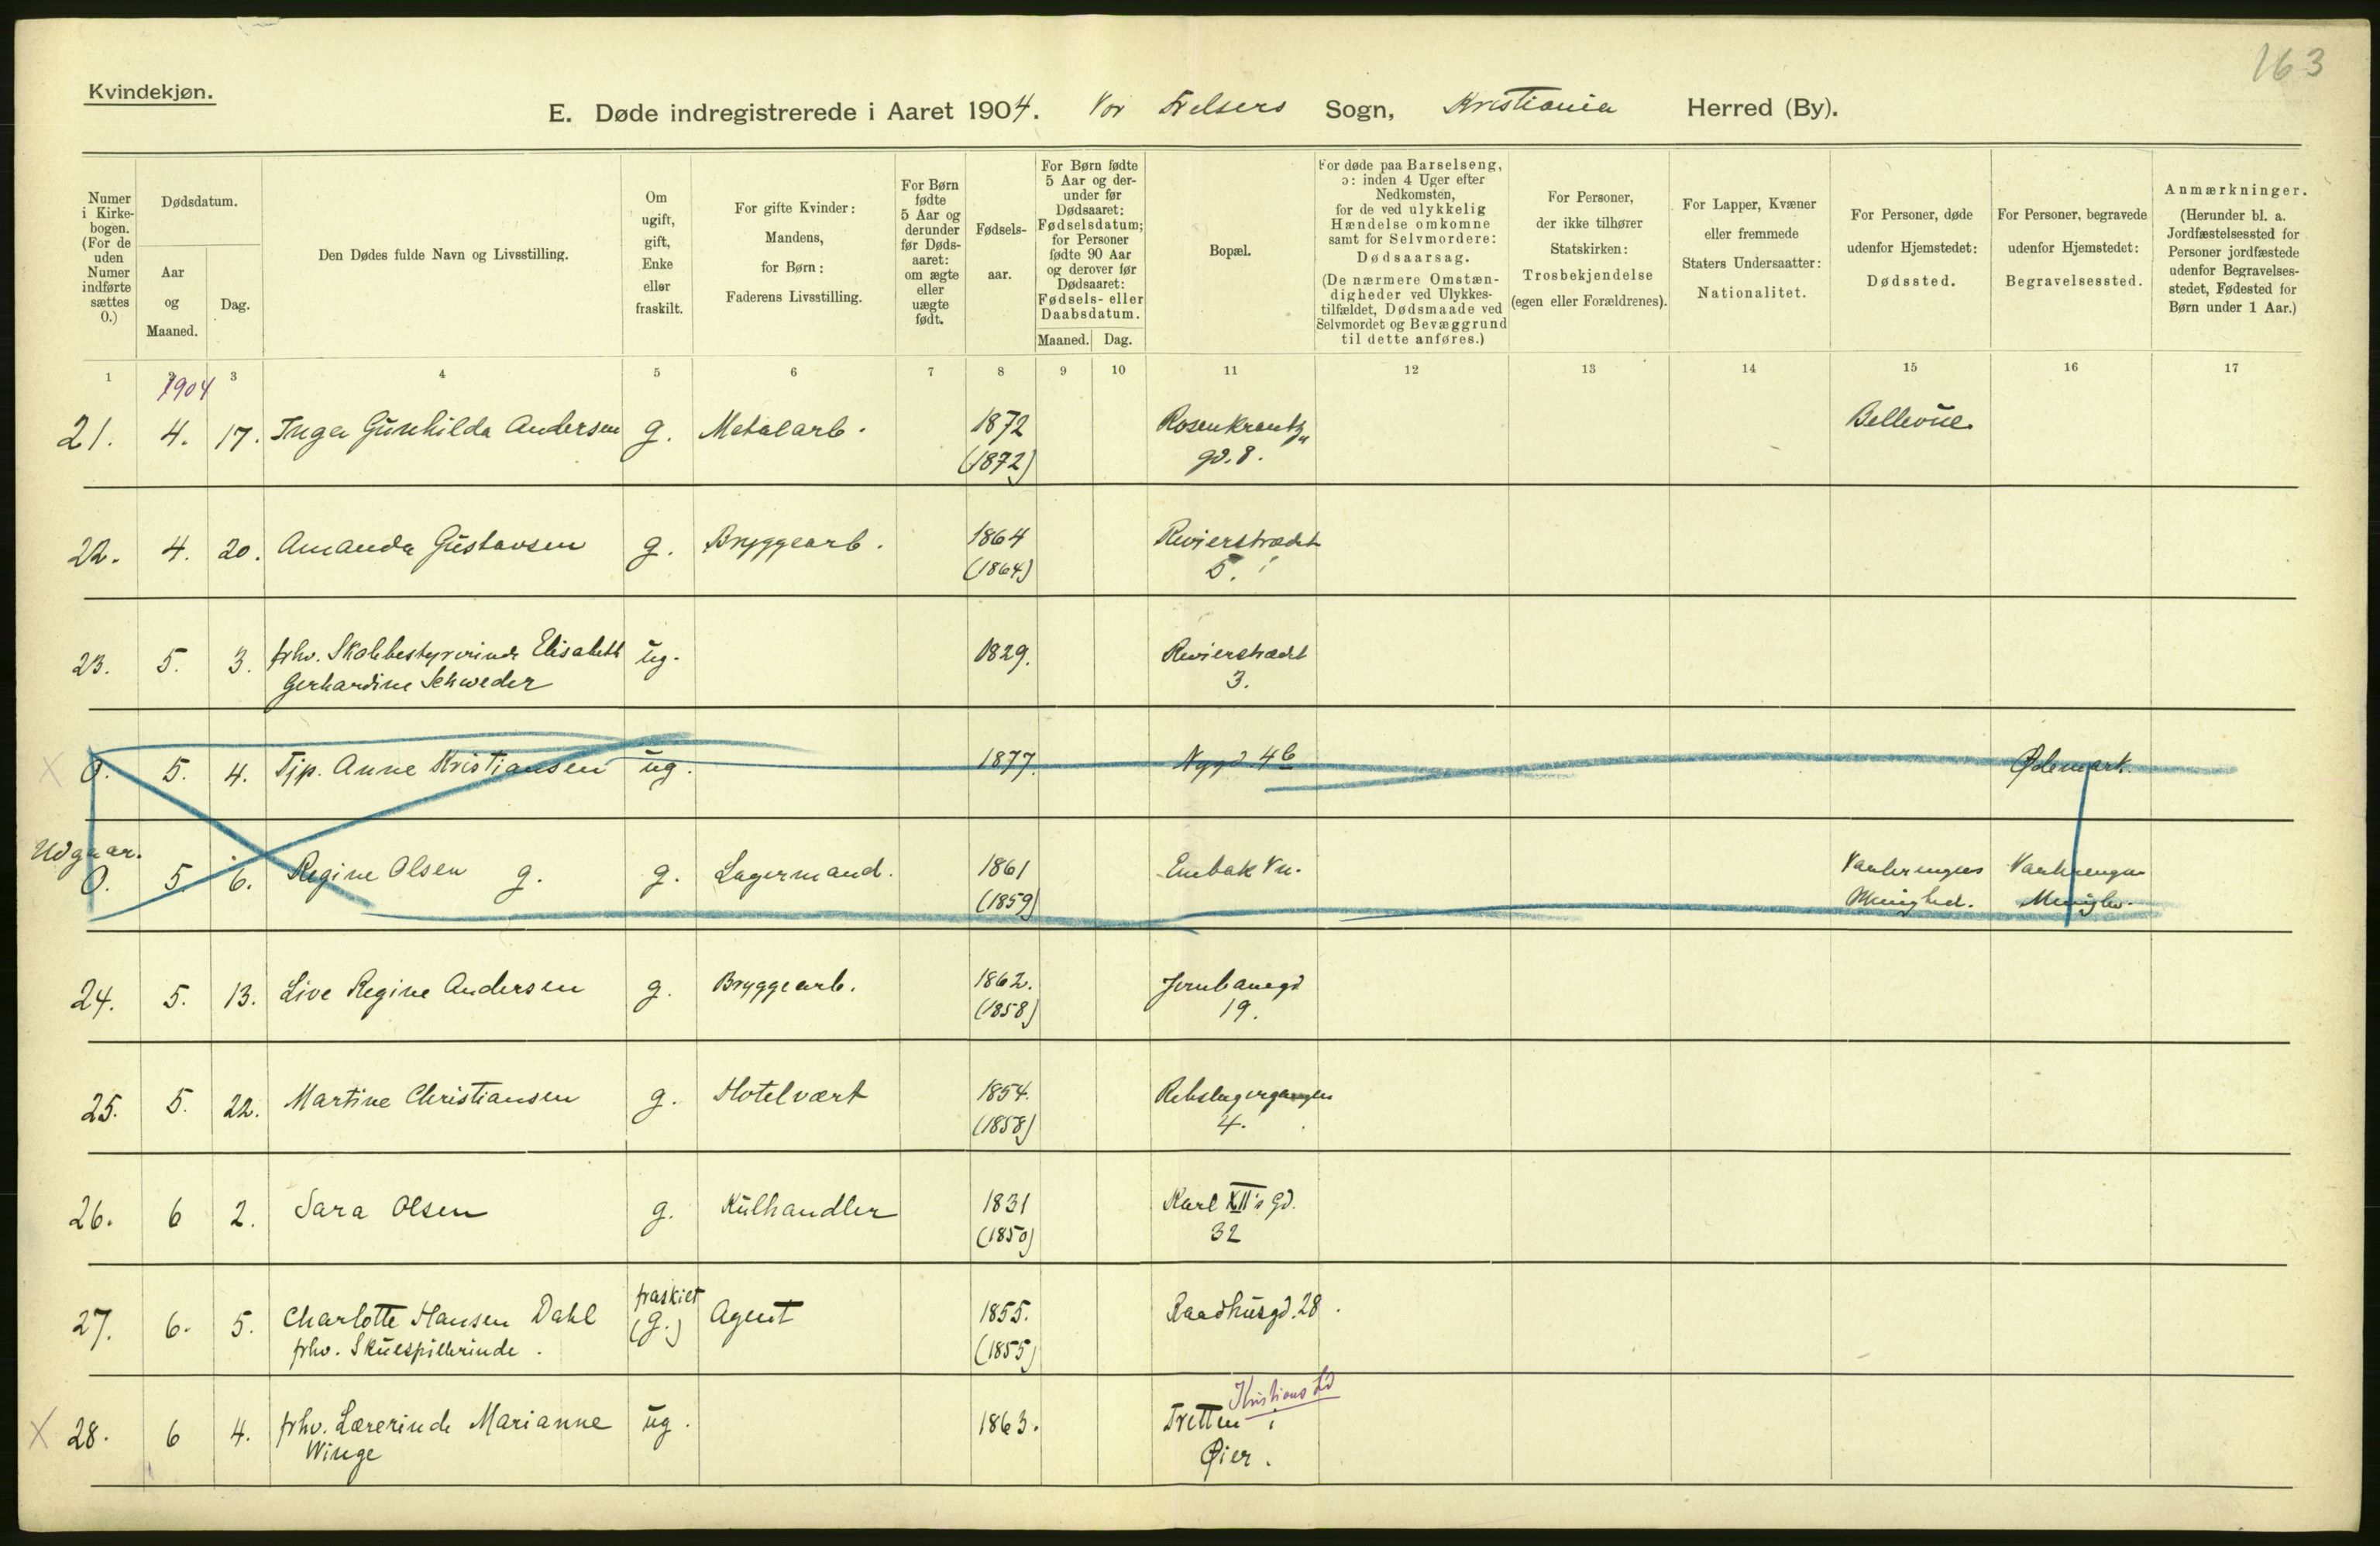 163
Kvindekjøn.
E. Døde indregistrerede i Aaret 1904. Vor Frelsers Sogn, Kristiania Herred (By).
Numer i Kirkebogen. (For de uden Numer indførte sættes 0.)
Dødsdatum.
Aar og Maaned.
Dag.
Den Dødes fulde Navn og Livsstilling.
Om ugift, gift, Enke eller fraskilt.
For gifte Kvinder: Mandens, for Børn: Faderens Livsstilling.
For Børn fødte 5 Aar og derunder før Dødsaaret: om ægte eller uægte født.
Fødselsaar.
For Børn fødte 5 Aar og derunder før Dødsaaret: Fødselsdatum; for Personer fødte 90 Aar og derover før Dødsaaret: Fødsels- eller Daabsdatum.
Maaned. Dag.
Bopæl.
For døde paa Barselseng, ɔ: inden 4 Uger efter Nedkomsten, for de ved ulykkelig Hændelse omkomne samt for Selvmordere: Dødsaarsag.
(De nærmere Omstændigheder ved Ulykkestilfældet, Dødsmaade ved Selvmordet og Bevæggrund til dette anføres.)
For Personer, der ikke tilhører Statskirken: Trosbekjendelse (egen eller Forældrenes).
For Lapper, Kvæner eller fremmede Staters Undersaatter: Nationalitet.
For Personer, døde udenfor Hjemstedet: Dødssted.
For Personer, begravede udenfor Hjemstedet: Begravelsessted.
Anmærkninger.
(Herunder bl. a. Jordfæstelsessted for Personer jordfæstede udenfor Begravelsesstedet, Fødested for Børn under 1 Aar.)
1 2 3 4 5 6 7 8 9 10 11 12 13 14 15 16 17
1904
21. 4. 17. Inga Gunhilda Andersen g. Metalarb. 1872 Rosenkrantz" Bellevue.
(1872) gd. 8.
22. 4. 20. Amanda Gustavsen g. Bryggearb. 1864 Revierstrædet
(1864) 5.
23. 5. 3. frhv. Skolebestyrerinde Elisabeth ug. 1829. Revierstrædet
Gerhardine Schweder 3.
X 0. 5. 4. Tjp. Anne Kristiansen ug. 1877. Nygd 4b Ødemark.
Udgaar.
0. 5. 6. Regine Olsen g. g. Lagermand. 1861 Enebak Vn. Vaalerengens Vaalerengen
(1859) Menighed. Menighed.
24. 5. 13. Live Regine Andersen g. Bryggearb. 1862. Jernbanegd
(1858) 19.
25. 5. 22. Martine Christiansen g. Hotelvært 1854. Rebslagergangen
(1858) 4.
26. 6 2. Sara Olsen g. Kulhandler 1831 Karl XII's gd.
(1850) 32
27. 6. 5. Charlotte Hansen Dahl fraskilt (g.) Agent 1855. Raadhusgd. 28.
frhv. Skuespillerinde. (1855)
Kristians
X 28. 6 4. frhv. Lærerinde Marianne ug. 1863. Tretten i
Winge Øier.